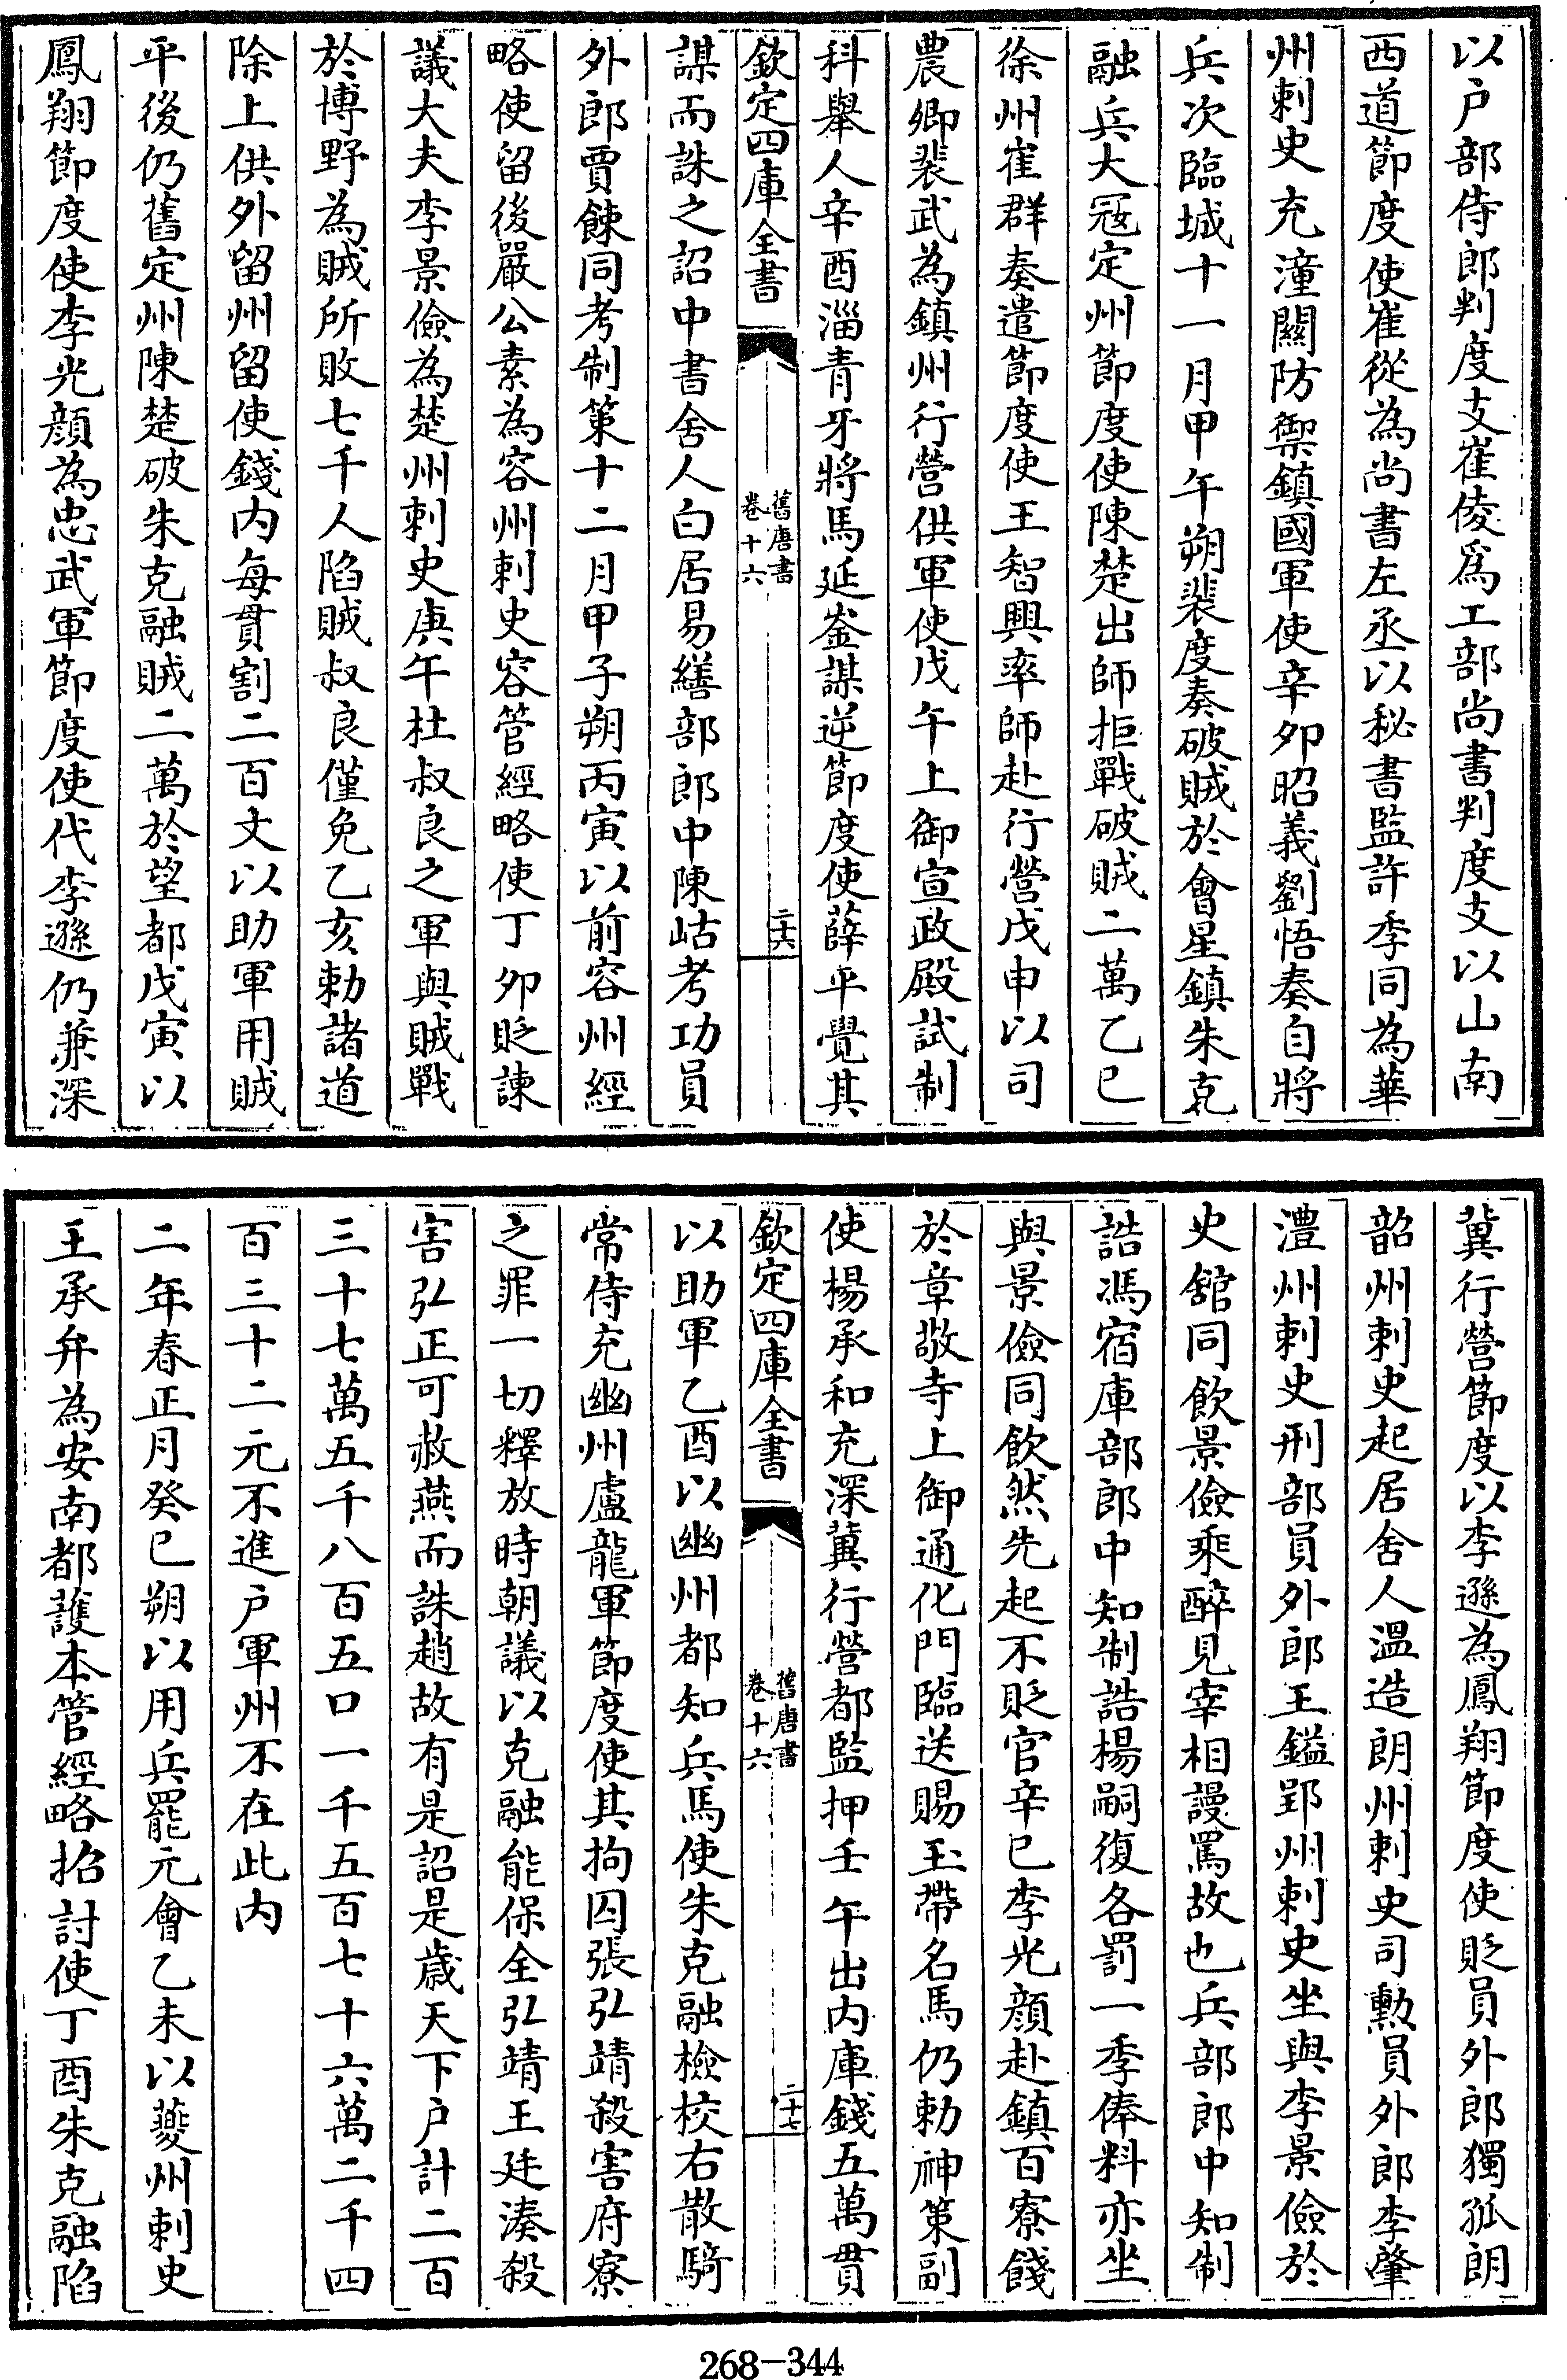 以户部侍郎判度支崔倰爲工部尚書判度支以山南
西道節度使崔從為尚書左丞以秘書監許季同為華
州刺史充潼關防禦鎮國軍使辛夘昭義劉悟奏自將
兵次臨城十一月甲午朔裴度奏破賊於會星鎮朱克
融兵大冦定州節度使陳楚出師拒戰破賊二萬乙巳
徐州崔群奏遣節度使王智興率師赴行營戊申以司
農卿裴武為鎮州行營供軍使戊午上御宣政殿試制
科舉人辛酉淄青牙將馬延崟謀逆節度使薛平覺其
欽定四庫全書
舊唐書
卷十六
二十六
謀而誅之詔中書舍人白居易繕部郎中陳岵考功員
外郎賈餗同考制策十二月甲子朔丙寅以前容州經
略使留後嚴公素為容州刺史容管經略使丁夘貶諫
議大夫李景儉為楚州刺史庚午杜叔良之軍與賊戰
於博野為賊所敗七千人陷賊叔良僅免乙亥勅諸道
除上供外留州留使錢内每貫割二百文以助軍用賊
平後仍舊定州陳楚破朱克融賊二萬於望都戊寅以
鳳翔節度使李光顔為忠武軍節度使代李遜仍兼深
冀行營節度以李遜為鳳翔節度使貶員外郎獨孤朗
韶州刺史起居舍人溫造朗州刺史司勲員外郎李肇
澧州刺史刑部員外郎王鎰郢州刺史坐與李景儉於
史舘同飲景儉乘醉見宰相謾罵故也兵部郎中知制
誥馮宿庫部郎中知制誥楊嗣復各罰一季俸料亦坐
與景儉同飲然先起不貶官辛巳李光顔赴鎮百寮餞
於章敬寺上御通化門臨送賜玉帶名馬仍勅神策副
使楊承和充深冀行營都監押壬午出内庫錢五萬貫
欽定四庫全書
舊唐書
卷十六
二十七
以助軍乙酉以幽州都知兵馬使朱克融檢校右散騎
常侍充幽州盧龍軍節度使其拘囚張弘靖殺害府寮
之罪一切釋放時朝議以克融能保全弘靖王廷湊殺
害弘正可赦燕而誅趙故有是詔是歲天下户計二百
三十七萬五千八百五口一千五百七十六萬二千四
百三十二元不進户軍州不在此内
二年春正月癸巳朔以用兵罷元會乙未以夔州刺史
王承弁為安南都護本管經略招討使丁酉朱克融陷
268-344